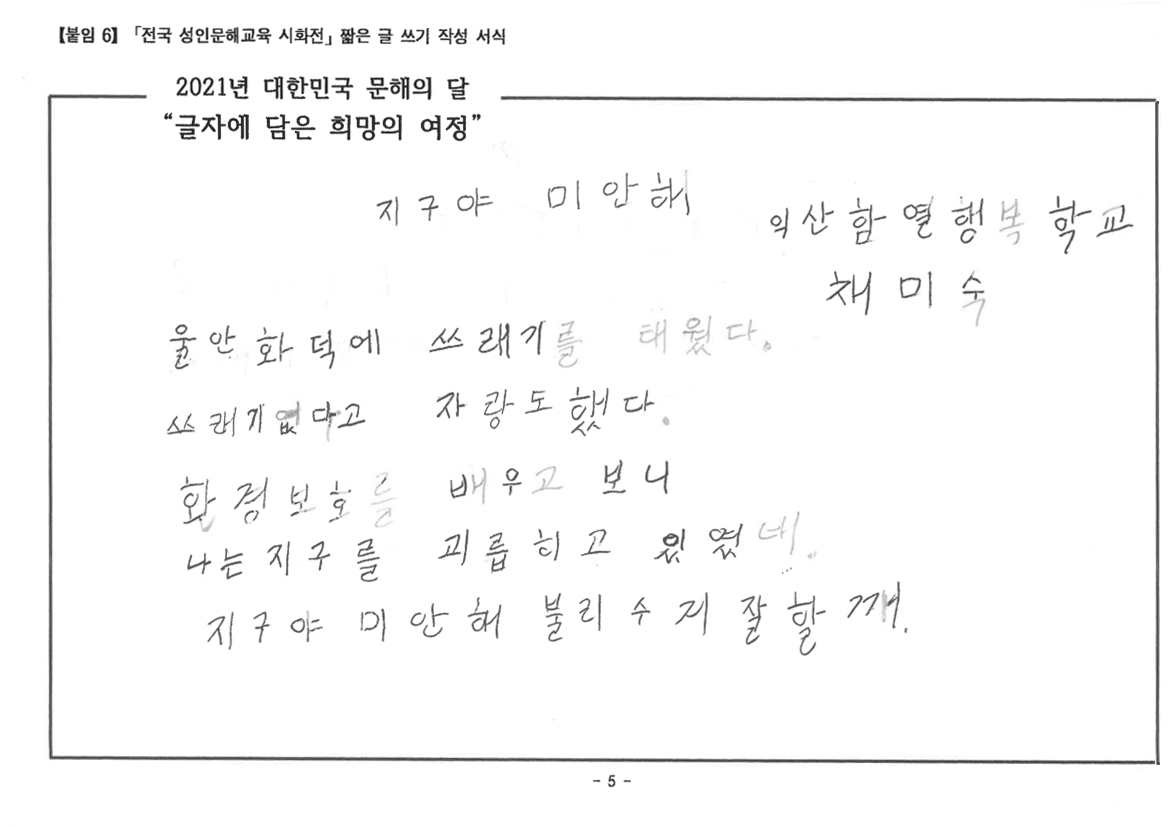 【붙임 6】 「전국 성인문해교육 시화전」 짧은 글 쓰기 작성 서식
2021년 대한민국 문해의 달
“글자에 담은 희망의 여정”
지구야 미안해
익산함열행복학교
채미숙
울안화덕에 쓰래기를 태웠다.
쓰래기없다고 자랑도했다.
환경보호를 배우고 보니
나는지구를 괴롭히고 있였네..
지구야 미안해 불리수거잘할께.
- 5 -